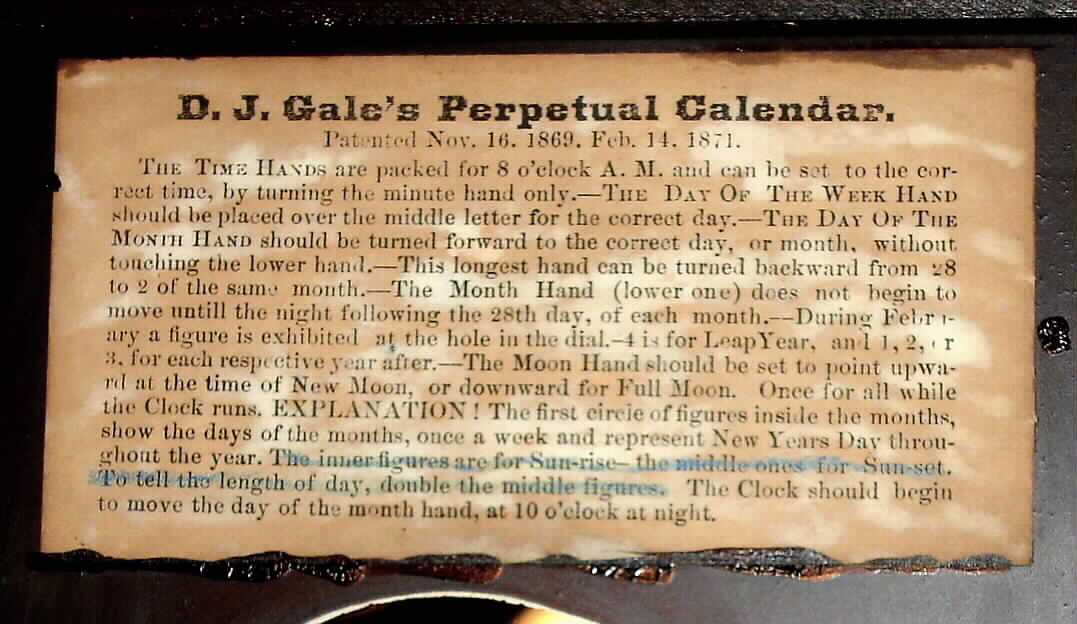 D. J. Gale's Perpetual Calendar.
Patented Nov. 16. 1869. Feb. 14. 1871.
THE TIME HANDS are packed for 8 o'clock A. M. and can be set to the cor-
rect time, by turning the minute hand only.—THE DAY OF THE WEEK HAND
should be placed over the middle letter for the correct day.—THE DAY OF THE
MONTH HAND should be turned forward to the correct day, or month, without
touching the lower hand.—This longest hand can be turned backward from 28
to 2 of the same month.—The Month Hand (lower one) does not begin to
move untill the night following the 28th day, of each month.—During Febru-
ary a figure is exhibited at the hole in the dial.—4 is for Leap Year, and 1, 2, or
3, for each respective year after.—The Moon Hand should be set to point upwa-
rd at the time of New Moon, or downward for Full Moon. Once for all while
the Clock runs. EXPLANATION! The first circle of figures inside the months,
show the days of the months, once a week and represent New Years Day throu-
ghout the year. The inner figures are for Sun-rise—the middle ones for Sun-set.
To tell the length of day, double the middle figures. The Clock should begin
to move the day of the month hand, at 10 o'clock at night.